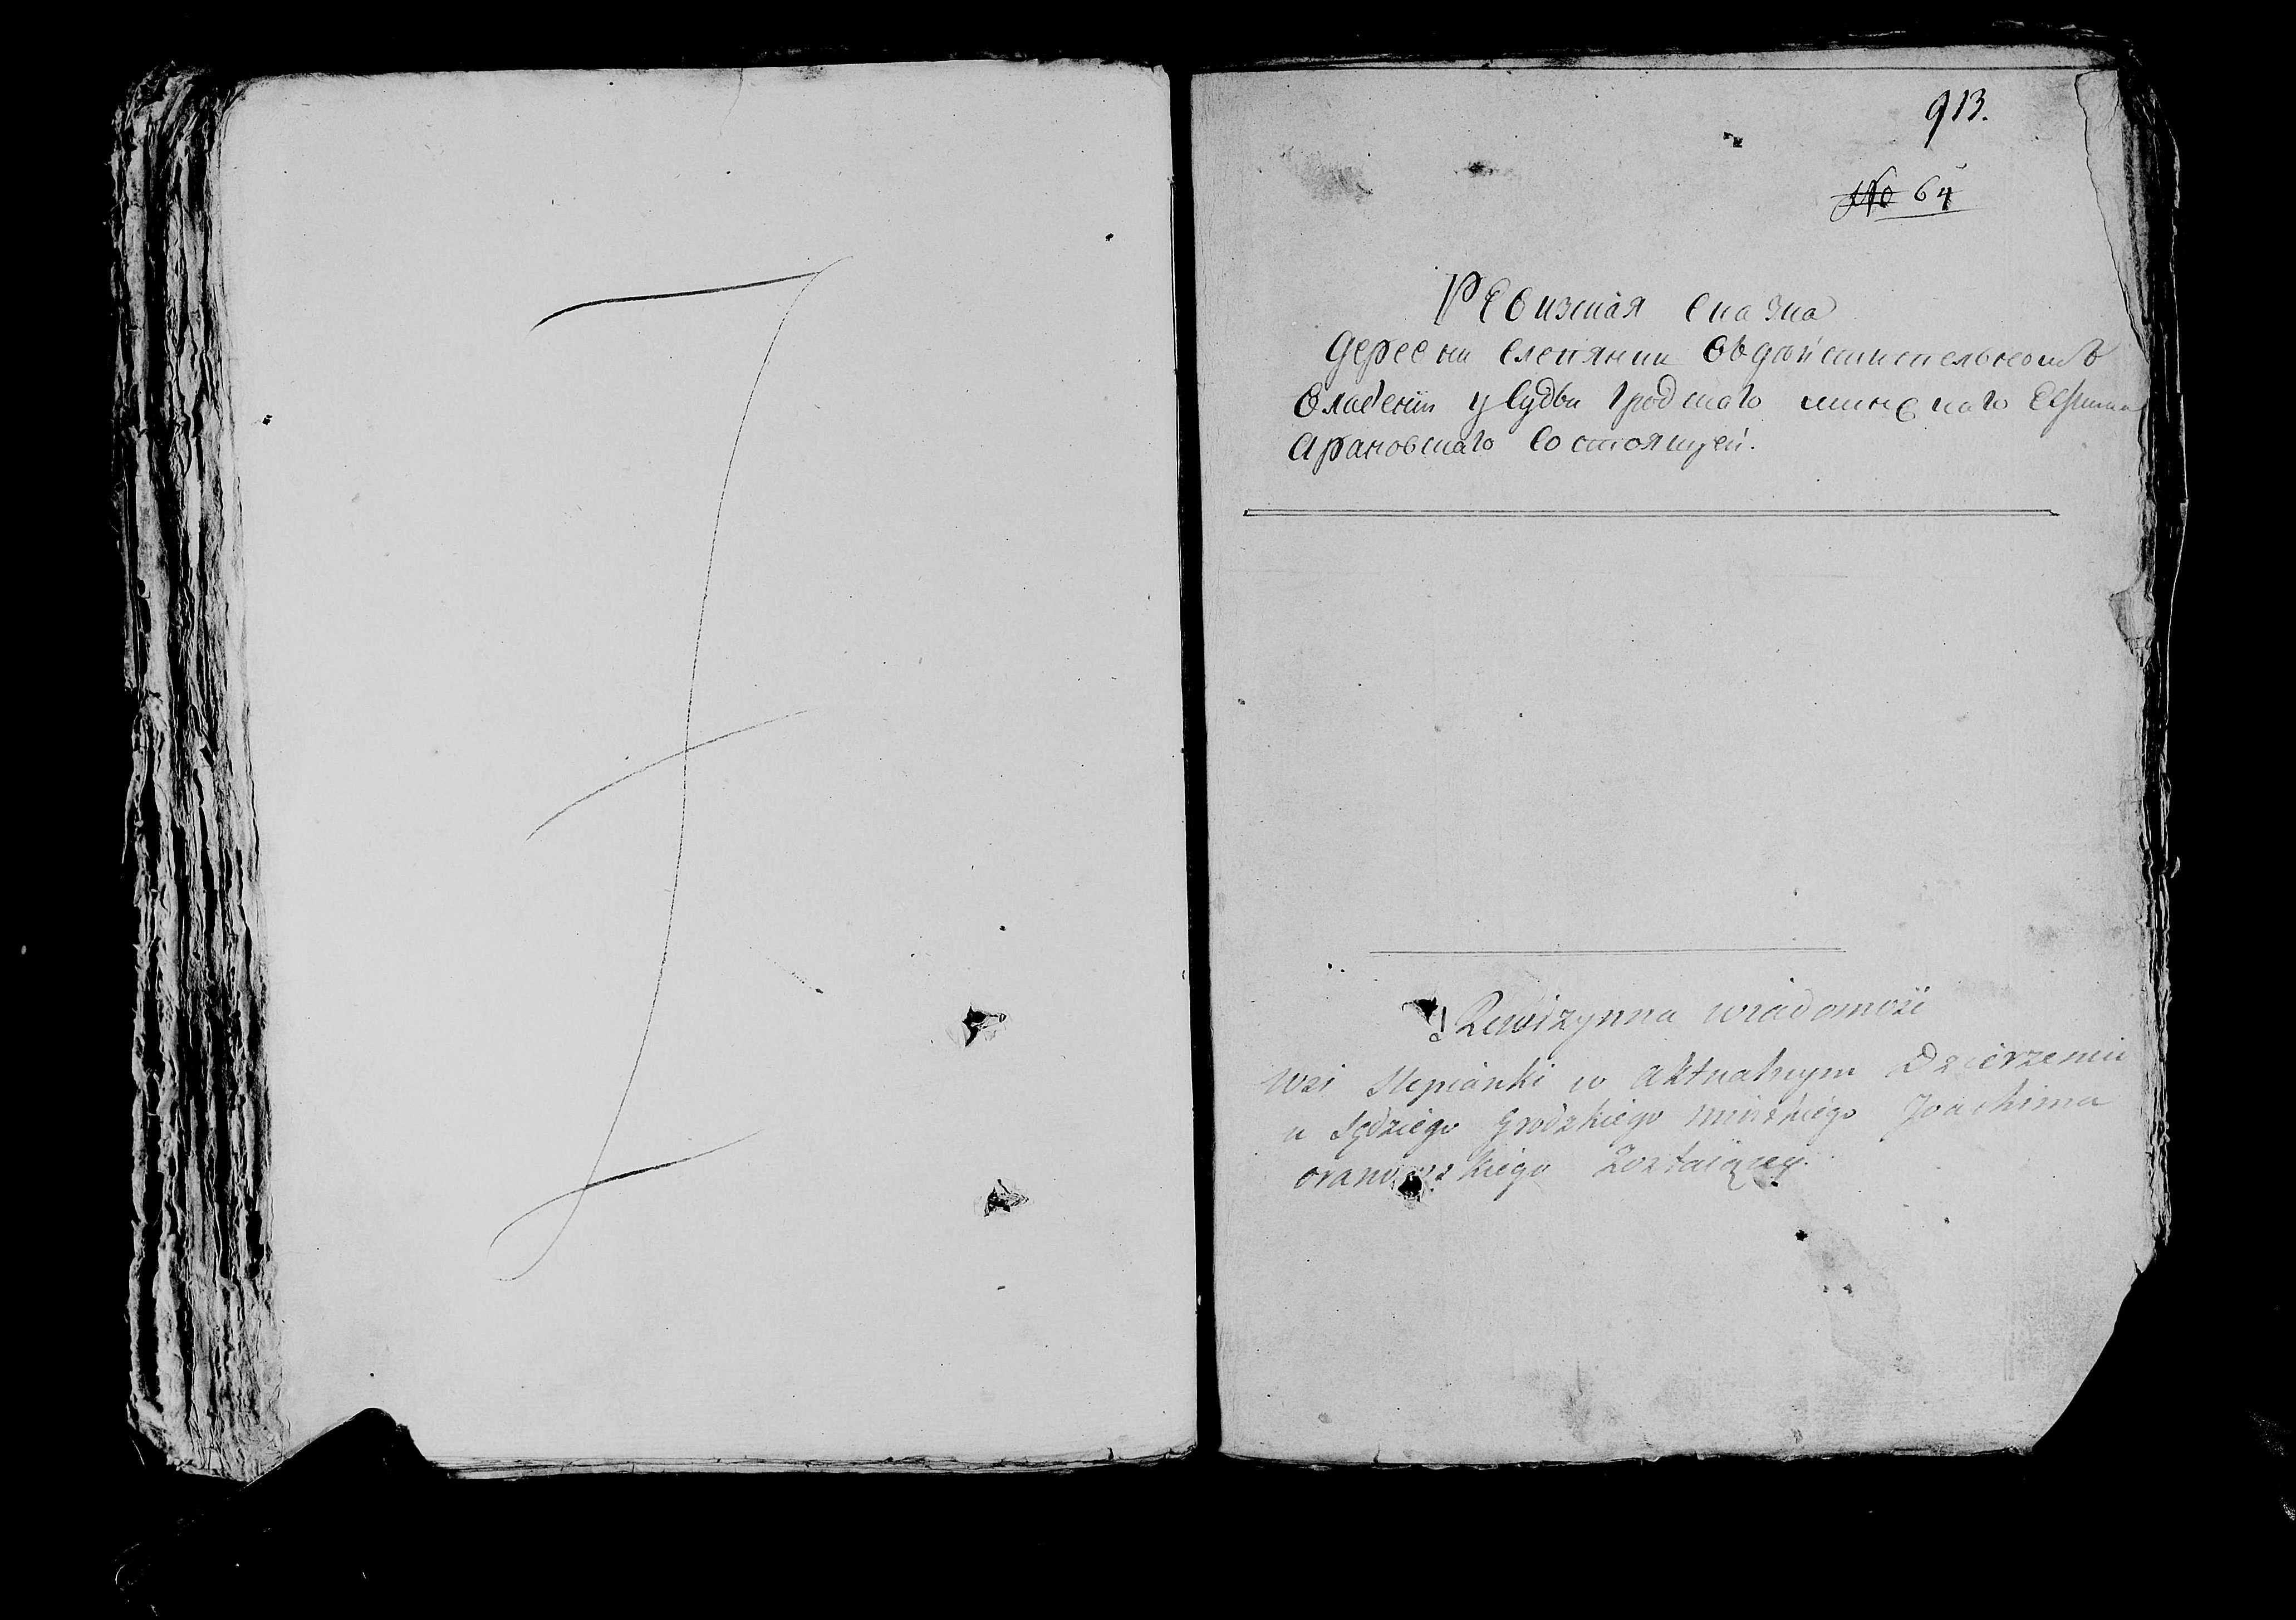 913.
№ 64
Ревизская сказка
деревни слепянки въ действительномъ
владении у судьи гродскаго минскаго
арановскаго состоящей.
Rewizynna wiadomość
wsi Slepianki w aktualnym Dzierzeniu
u Sędziego Grodzkiego minskiego Joachima
oranowskiego Zostaiącey.